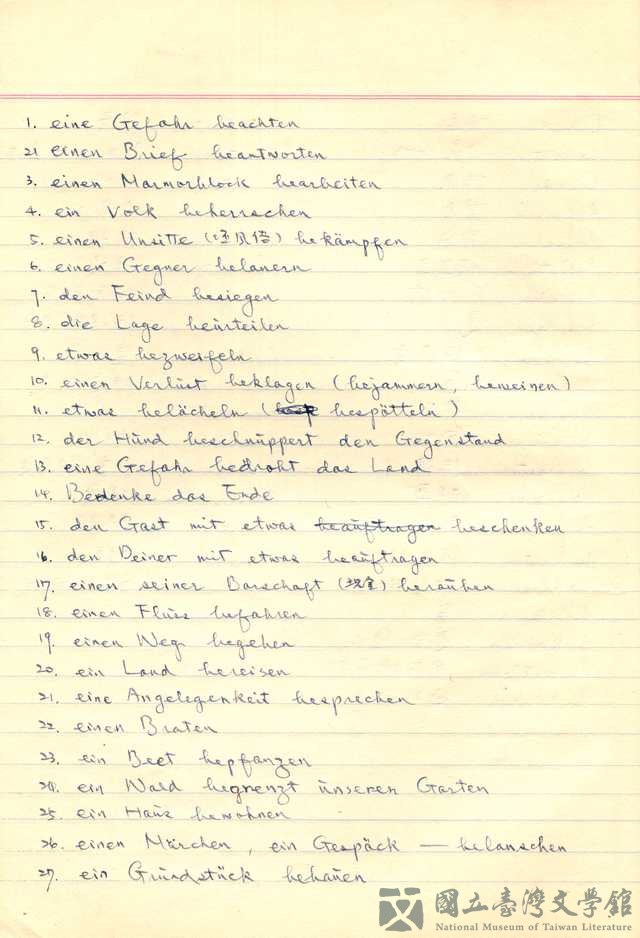 1. eine Gefahr beachten
2. einen Brief beantworten
3. einen Marmorblock bearbeiten
4. ein Volk beherrschen
5. einen Unsitte (风俗) bekämpfen
6. einen Gegner belauern
7. den Feind besiegen
8. die Lage beurteilen
9. etwas bezweifeln
10. einen Verlust beklagen (bejammern, beweinen)
11. etwas belächeln (bespötteln)
12. der Hund beschnuppert den Gegenstand
13. eine Gefahr bedroht das Land
14. Bedenke das Ende
15. den Gast mit etwas beauftragen beschenken
16. den Deiner mit etwas beauftragen
17. einen seiner Barschaft (現金) berauben
18. einen Fluss befahren
19. einen Weg begehen
20. ein Land bereisen
21. eine Angelegenkeit besprechen
22. einen Braten
23. ein Beet bepfanzen
24. ein Wald begrenzt unseren Garten
25. ein Haus bewohnen
26. einen Märchen, ein Gespäck — belauschen
27. ein Grundstück bebauen
國立臺灣文學館
National Museum of Taiwan Literature